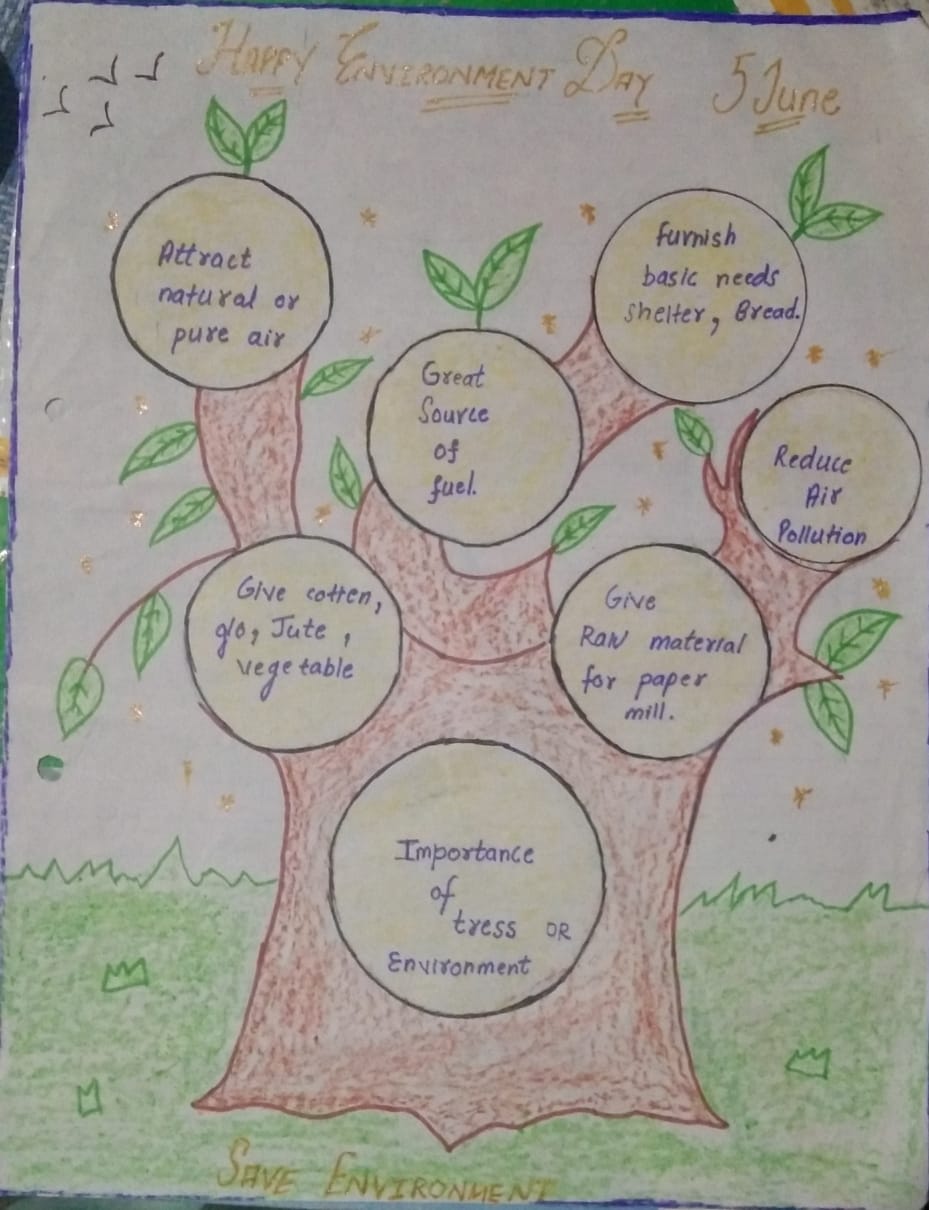 Happy Environment Day 5 June
Attract
natural or
pure air
furnish
basic needs
shelter, Bread.
Great
Source
of
fuel.
Reduce
Air
Pollution
Give cotten,
Jute,
vegetable
Give
Raw material
for paper
mill.
Importance
of
tress OR
Environment
Save Environment